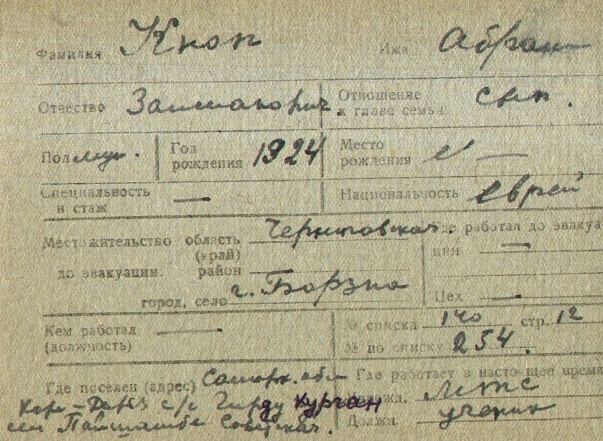 Фамилия Кноп Имя Абрам
Отчество Отношение к главе семьи сын.
Пол муж. Год рождения 1924 Место рождения —
Специальность и стаж — Национальность еврей
Местожительство область (край) Черниговская Где работал до эвакуации —
до эвакуации район
город, село г. Борзна Цех —
Кем работал (должность) — № списка 140 стр. 12
№ по списку 254.
Где поселен (адрес) Самарк. обл Где работает в настоящее время
с/с курган МТС
сел Пайшамбе Должн. ученик